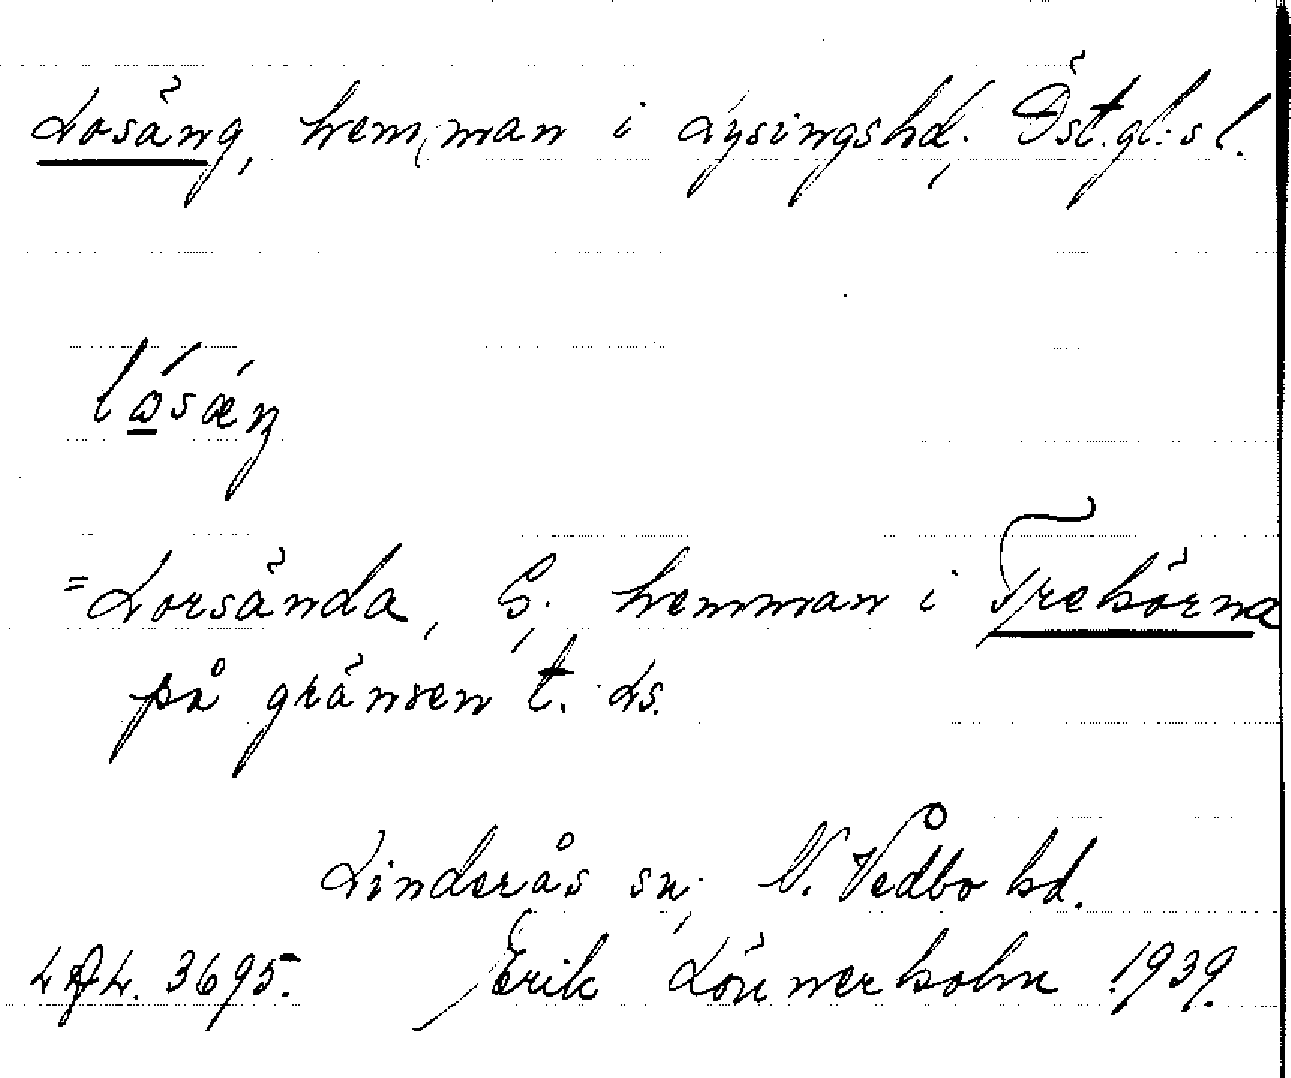 Losäng, hemman i Lysingshd; Östgl:s l.
lo̲´sæ´ŋ
=Lorsända, S; hemman i Trehörna
på gränsen t. Ls.
Linderås sn; N. Vedbo hd.
3695. Erik Lönnerholm 1939.